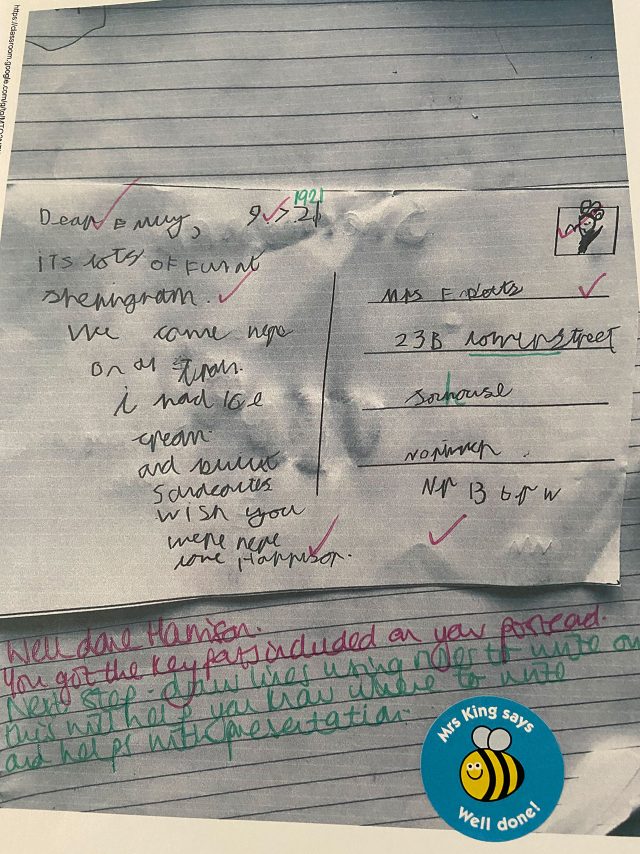 Dear Emuy, 9 > 21
1921
its lots of fun at
sheringram.
We came here
on a train.
i had ice
cream.
and built
Sandcastles
wish you
were here
love Harrison.
Mrs E potts
23B street
house
NR 13 6 P W
Well done Harrison.
You got the key parts included on your postcard.
Next step - draw lines using ruler to write on
this will help you know where to write
and helps with presentation.
Mrs King says
Well done!